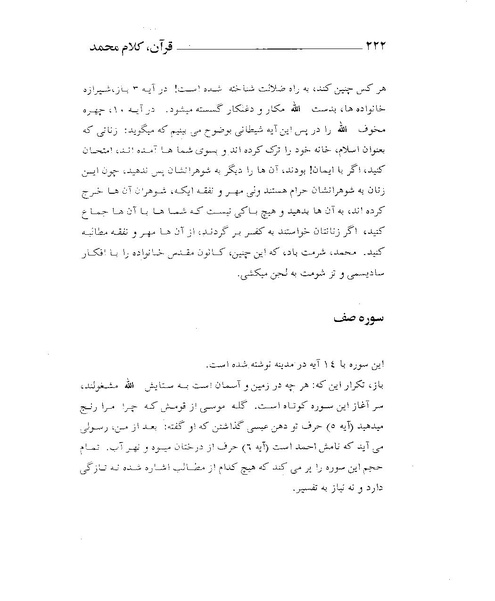 ۲۲۲ قرآن، کلام محمد
هر کس چنین کند، به راه ضلالت شناخته شده است! در آیه ۳ باز، شیرازه
خانواده ها، بدست الله مکار و دغلکار گسسته میشود. در آیه ۱۰، چهره
مخوف الله را در پس این آیه شیطانی بوضوح می بینیم که میگوید: زنانی که
بعنوان اسلام، خانه خود را ترک کرده اند و بسوی شما ها آمده اند، امتحان
کنید، اگر با ایمان! بودند، آن ها را دیگر به شوهرانشان پس ندهید، چون این
زنان به شوهرانشان حرام هستند ولی مهر و نفقه ایکه، شوهران آن ها خرج
کرده اند، به آن ها بدهید و هیچ باکی نیست که شما ها با آن ها جماع
کنید، اگر زنانتان خواستند به کفر بر گردند، از آن ها مهر و نفقه مطالبه
کنید. محمد، شرمت باد، که این چنین، کانون مقدس خانواده را با افکار
سادیسمی و تز شومت به لجن میکشی.
سوره صف
این سوره با ۱۴ آیه در مدینه نوشته شده است.
باز، تکرار این که: هر چه در زمین و آسمان است به ستایش الله مشغولند،
سر آغاز این سوره کوتاه است. گله موسی از قومش که چرا مرا رنج
میدهید (آیه ۵) حرف تو دهن عیسی گذاشتن که او گفته: بعد از من، رسولی
می آید که نامش احمد است (آیه ۶) حرف از درختان میوه و نهر آب. تمام
حجم این سوره را پر می کند که هیچ کدام از مطالب اشاره شده نه تازگی
دارد و نه نیاز به تفسیر.